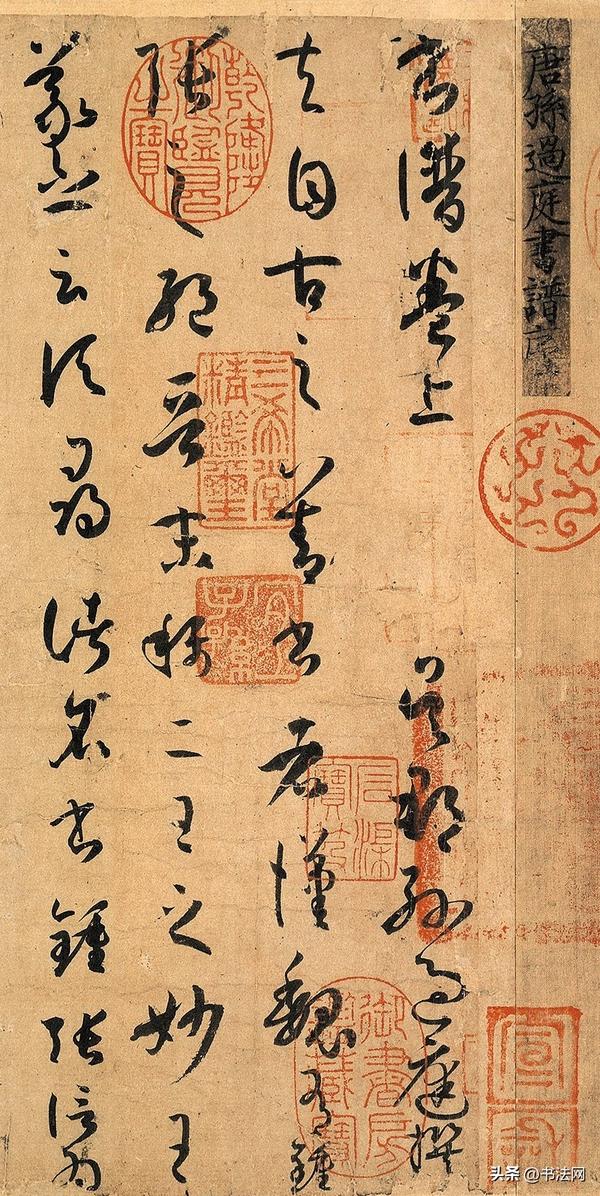 唐孫過庭書譜序
書譜卷上 吳郡孫過庭撰
夫自古之善書者漢魏有鍾
張之絕晉末稱二王之妙王
羲之云頃尋諸名書鍾張信為
乾隆御覽之寶
三希堂精鑑璽
宜子孫
石渠寶笈
御書房鑑藏寶
宣和
头条 @书法网